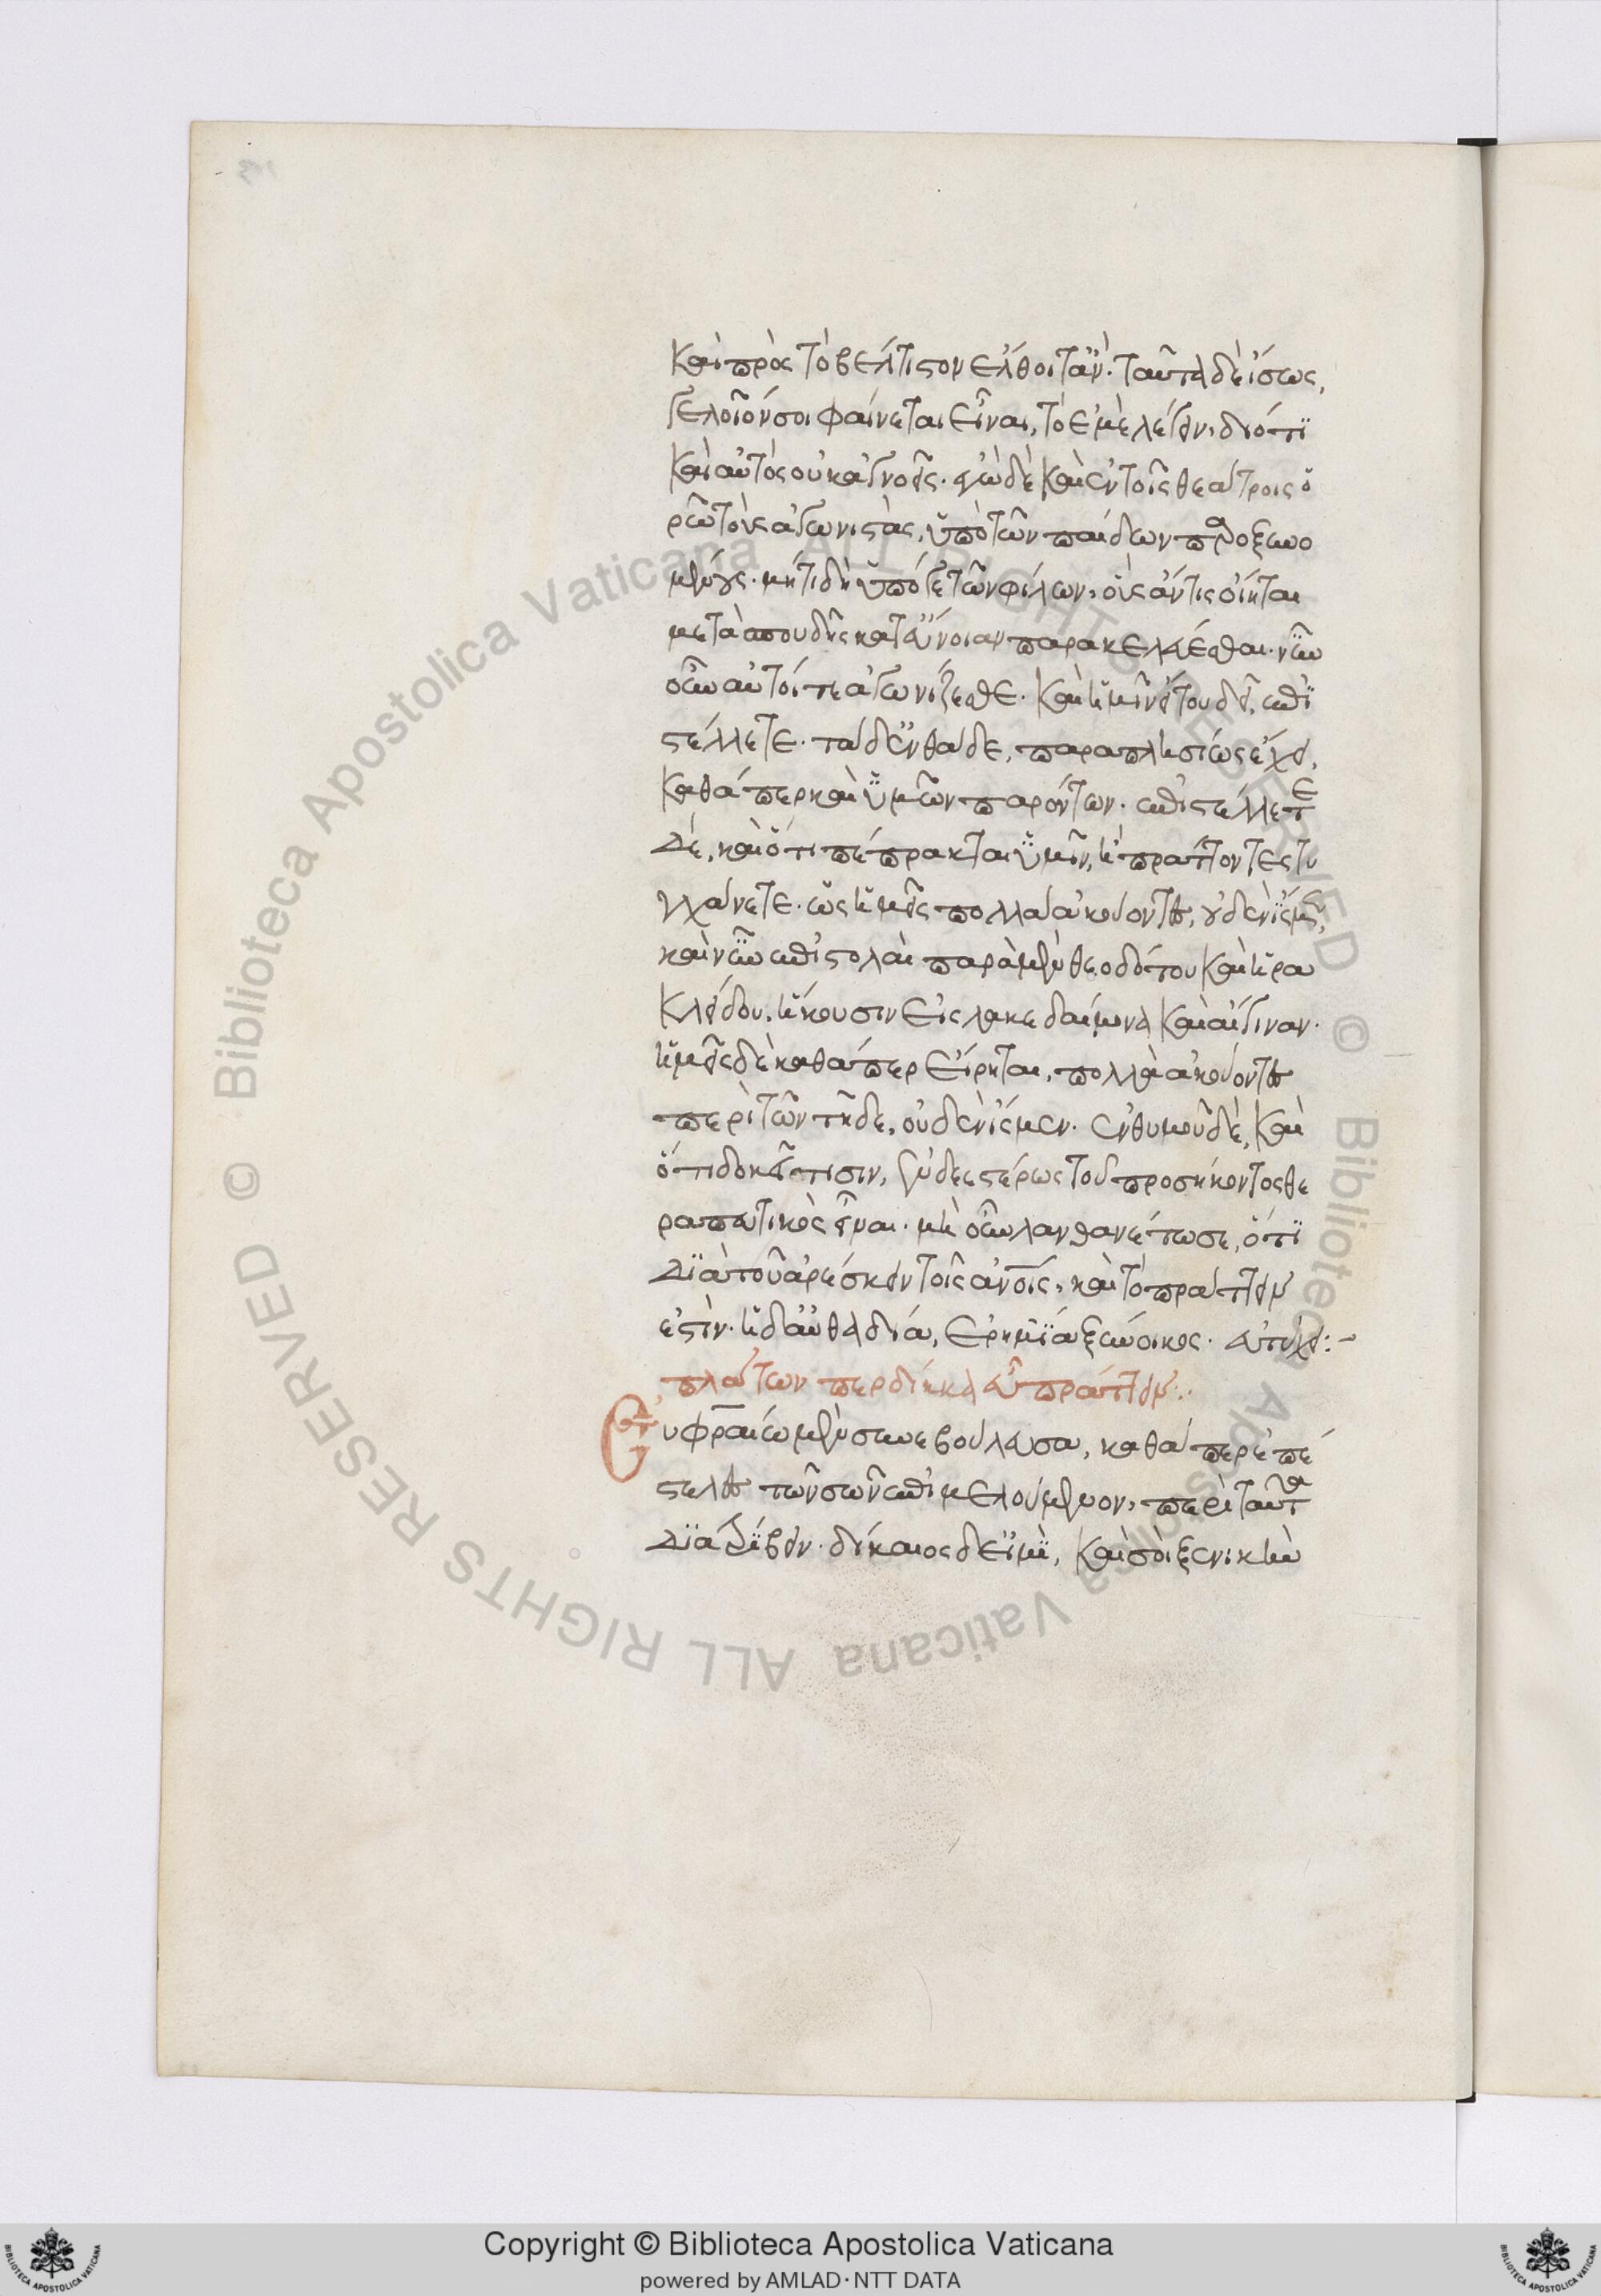 καὶ πρὸς τὸ βέλτιστον ἔλθοιτ' ἄν. ταῦτα δὲ ἴσως,
γελοῖόν σοι φαίνεται εἶναι, τὸ ἐμὲ λέγειν, διότι
καὶ αὐτὸς οὐκ ἀγνοεῖς. ἐγὼ δὲ καὶ ἐν τοῖς θεάτροις ὁ
ρῶ τοὺς ἀγωνιστὰς, ὑπὸ τῶν παίδων παροξυνο
μένους. μήτι δὴ ὑπό γε τῶν φίλων, οὓς ἄν τις οἴηται
μετὰ σπουδῆς κατ' εὔνοιαν παρακελεύεσθαι. νῦν
οὖν αὐτοί τε ἀγωνίζεσθε. καὶ ἡμῖν εἴ του δεῖ, ἐπι
στέλλετε. τὰ δ' ἐνθάδε, παραπλησίως ἔχει,
καθάπερ καὶ ὑμῶν παρόντων. ἐπιστέλλετε
δὲ, καὶ ὅτι πέπρακται ὑμῖν, ἢ πράττοντες τυ
γχάνετε. ὡς ἡμεῖς πολλὰ ἀκούοντες, οὐδὲν ἴσμεν,
καὶ νῦν ἐπιστολαὶ παρὰ μὲν θεοδότου καὶ ἡρα
κλείδου, ἥκουσιν εἰς λακεδαίμονα καὶ αἴγιναν.
ἡμεῖς δὲ καθάπερ εἴρηται, πολλὰ ἀκούοντες
περὶ τῶν τῇδε, οὐδὲν ἴσμεν. ἐνθυμοῦ δὲ, καὶ
ὅτι δοκεῖς τισιν, ἐνδεεστέρως τοῦ προσήκοντος θε
ραπευτικὸς εἶναι. μὴ οὖν λανθανέτω σε, ὅτι
διὰ τοῦ ἀρέσκειν τοῖς ἀνοις, καὶ τὸ πράττειν
ἐστίν. ἡ δ' αὐθάδεια, ἐρημίᾳ ξύνοικος. εὐτύχει:~
πλάτων περδίκκᾳ εὖ πράττειν:
Εὐφραίῳ μὲν συνεβούλευσα, καθάπερ ἐπέ
στελλες τῶν σῶν ἐπιμελούμενον, περὶ ταῦτα
διατρίβειν. δίκαιος δ' εἰμὶ, καὶ σοὶ ξενικὴν
Copyright © Biblioteca Apostolica Vaticana
powered by AMLAD·NTT DATA